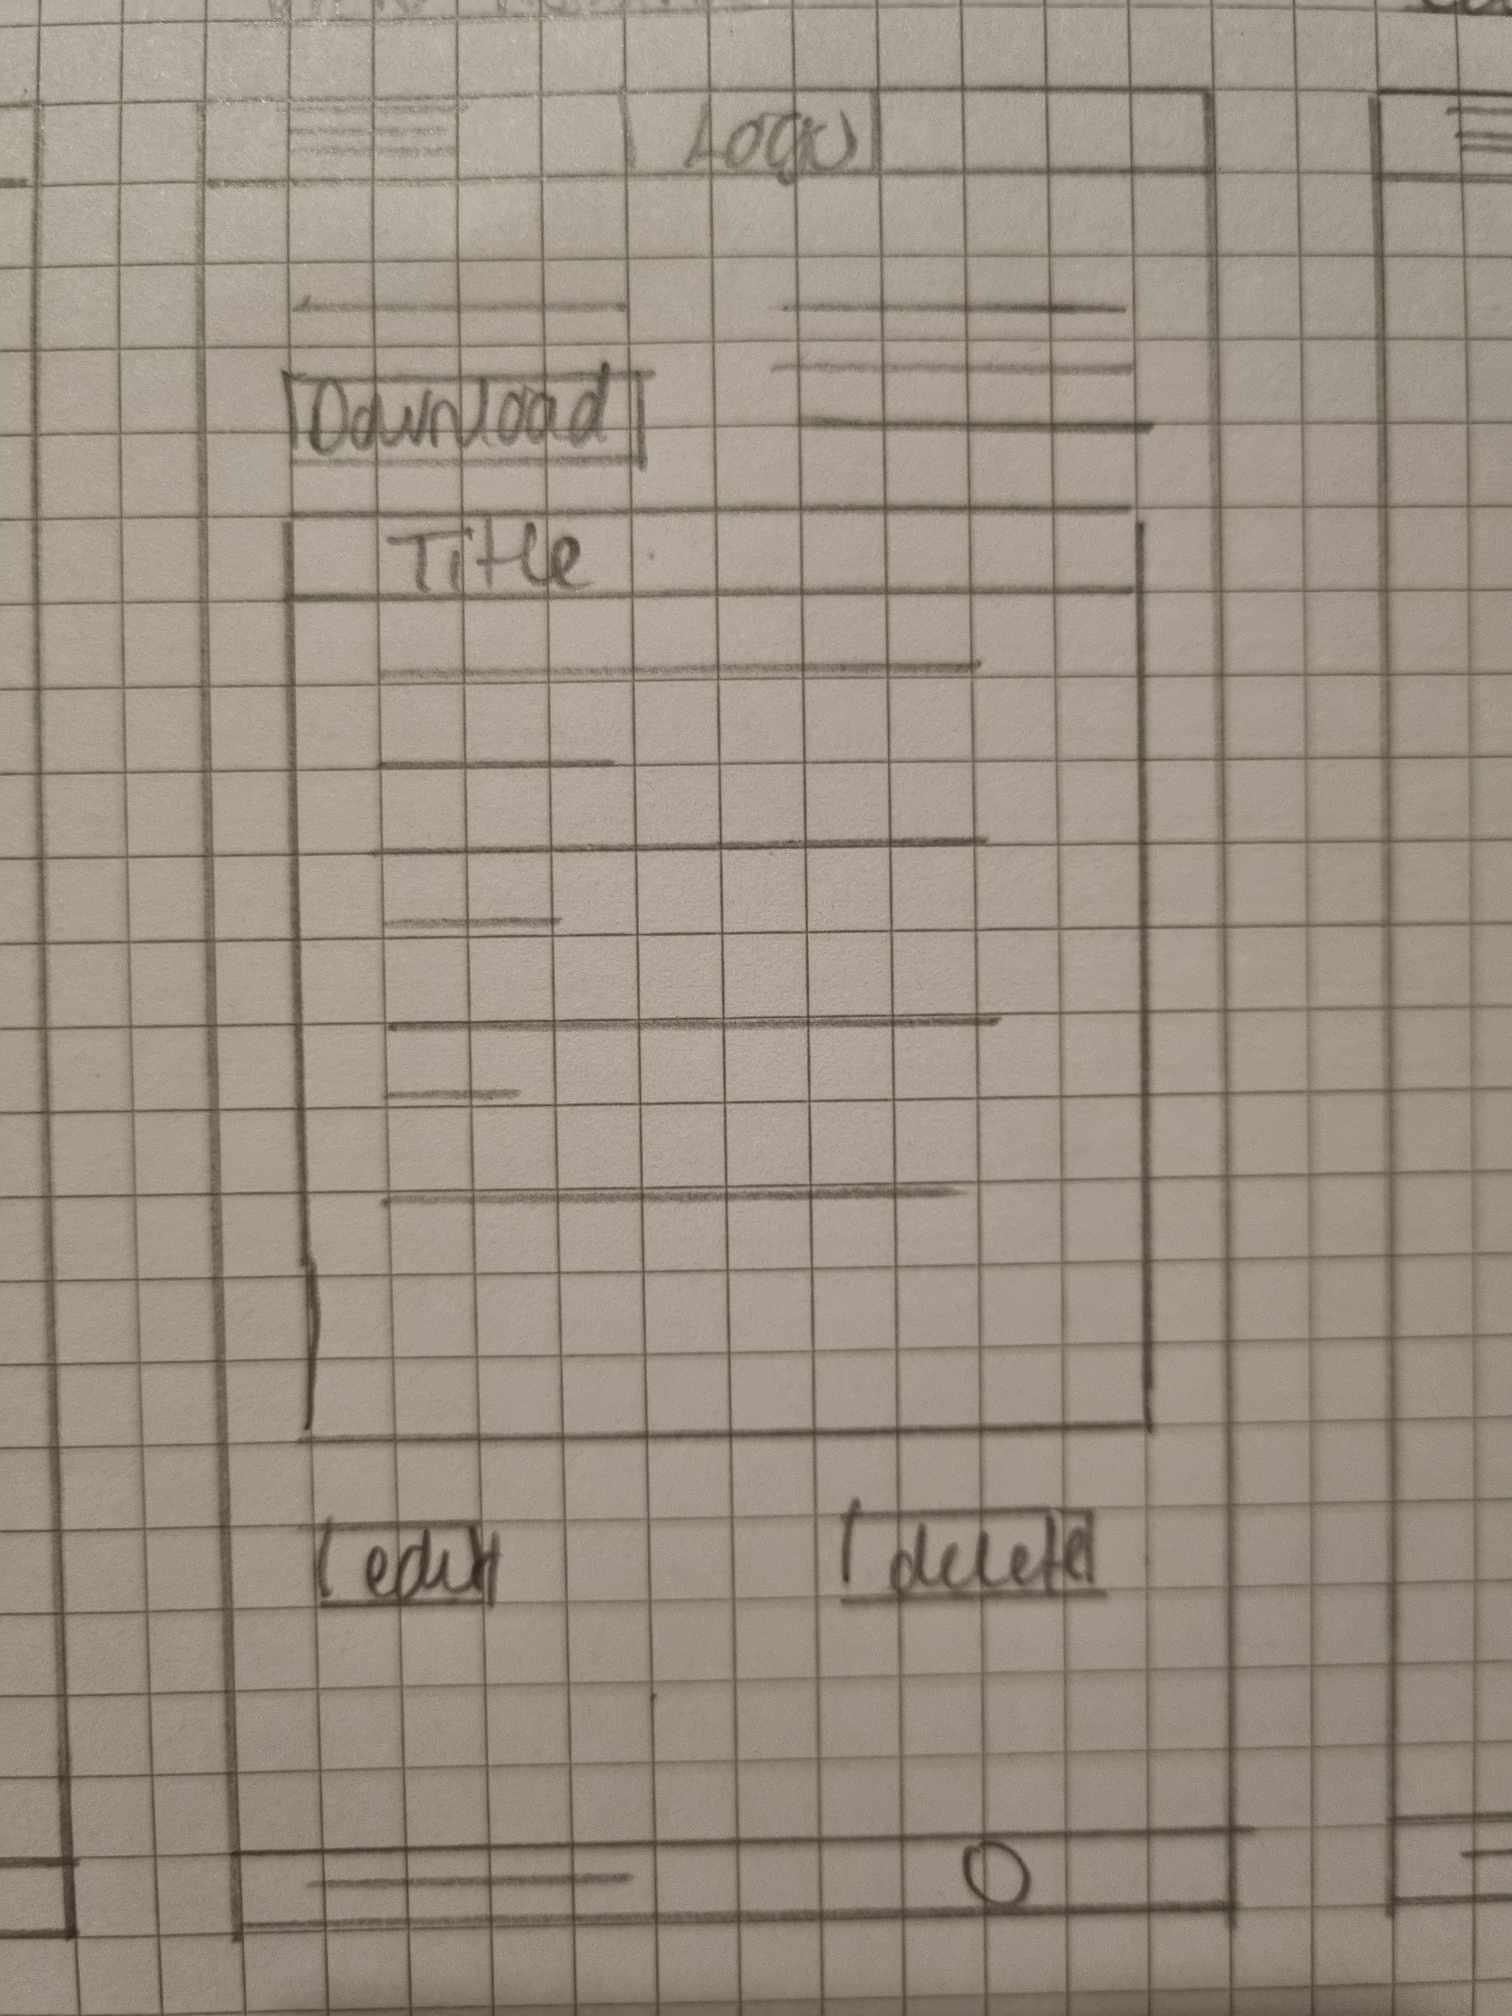 Logo
Download
Title
edit
delete